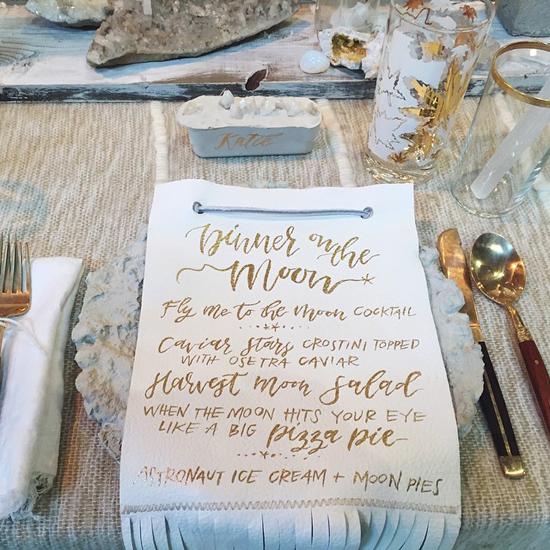 Katie
Dinner on the
Moon
Fly me to the moon COCKTAIL
Caviar stars CROSTINI TOPPED
WITH OSETRA CAVIAR
Harvest Moon Salad
WHEN THE MOON HITS YOUR EYE
LIKE A BIG pizza pie
ASTRONAUT ICE CREAM + MOON PIES